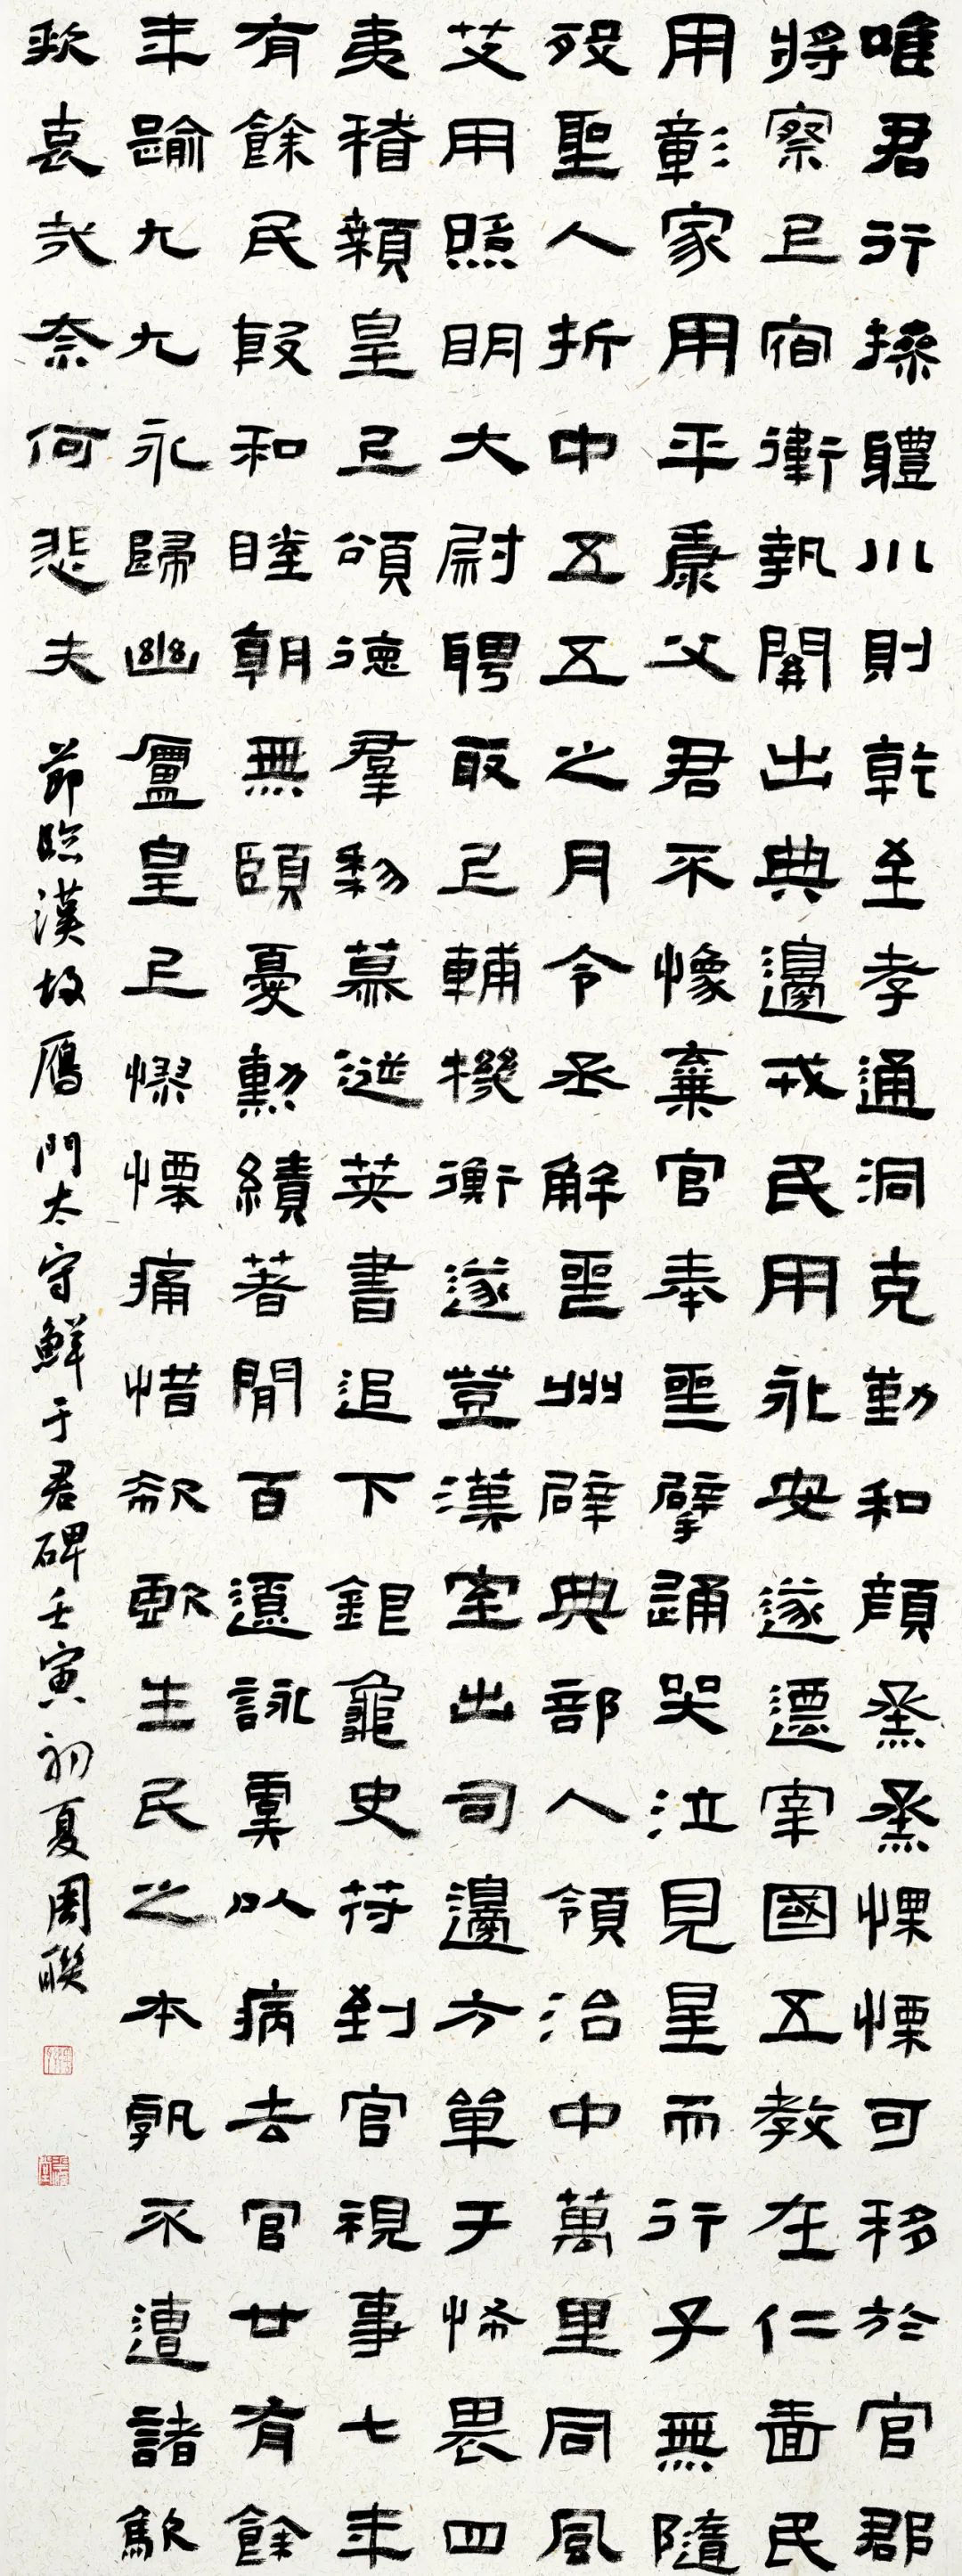 唯君行操體川則乾至孝通洞克勤和顔烝烝慄慄可移於官郡
將察㠯宿衞執關出典邊戎民用永安遂遷宰國五教在仁嗇民
用彰家用平康父君不豫棄官奉喪擗踊哭泣見星而行子無隨
歿聖人折中五五之月令丞解喪州辟典部入領治中萬里同風
艾用照明大尉聘取㠯輔機衡遂登漢室出司邊方單于怖畏四
夷稽顙皇㠯頌德羣黎慕義英書追下銀龜史符到官視事七年
有餘民殷和睦朝無顧憂勳績著聞百遼詠虞以病去官廿有餘
年踰九九永歸幽廬皇㠯憀慄痛惜欷歔生民之本孰不遭諸歍
欷哀哉奈何悲夫
節臨漢故鴈門太守鮮于君碑壬寅初夏周聯